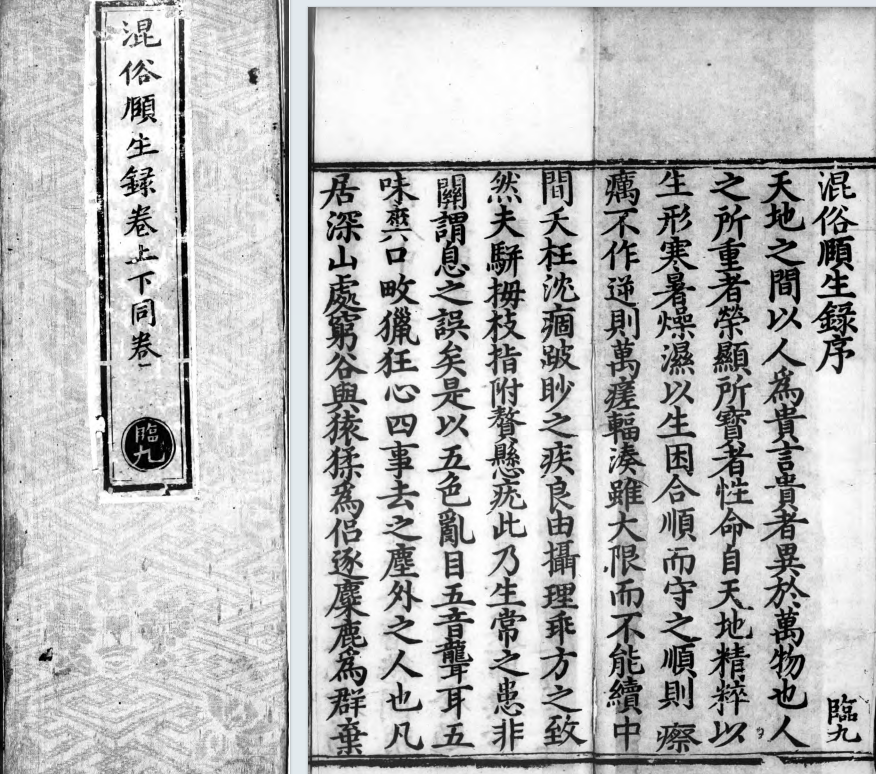 混俗頥生錄卷上下同卷
臨九
混俗頥生錄序
臨九
天地之間以人爲貴言貴者異於萬物也人
之所重者榮顯所寶者性命自天地精粹以
生形寒暑燥濕以生困合順而守之順則瘵
癘不作逆則萬瘥輻湊雖大限而不能續中
間夭枉沈痼跛眇之疾良由攝理乖方之致
然夫駢拇枝指附贅懸疣此乃生常之患非
關謂息之誤矣是以五色亂目五音聾耳五
味爽口畋獵狂心四事去之塵外之人也凡
居深山處窮谷與猿猱爲侶逐麋鹿爲群棄